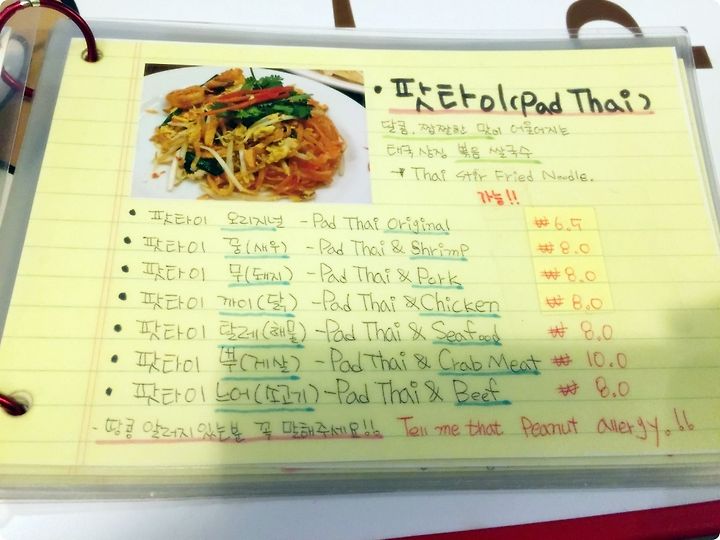 • 팟타이(Pad Thai)
달콤, 짭짤한 맛이 어울어지는
태국 상징 볶음 쌀국수
→ Thai Stir Fried Noodle.
가능!!
• 팟타이 오리지널 - Pad Thai Original ₩ 6.5
• 팟타이 꿍(새우) - Pad Thai & Shrimp ₩ 8.0
• 팟타이 무(돼지) - Pad Thai & Pork ₩ 8.0
• 팟타이 까이(닭) - Pad Thai & Chicken ₩ 8.0
• 팟타이 탈레(해물) - Pad Thai & Seafood ₩ 8.0
• 팟타이 뿌(게살) - Pad Thai & Crab Meat ₩ 10.0
• 팟타이 느어(쏘고기) - Pad Thai & Beef ₩ 8.0
- 땅콩 알러지 있는분 꼭 말해주세요!! Tell me that Peanut allergy.!!